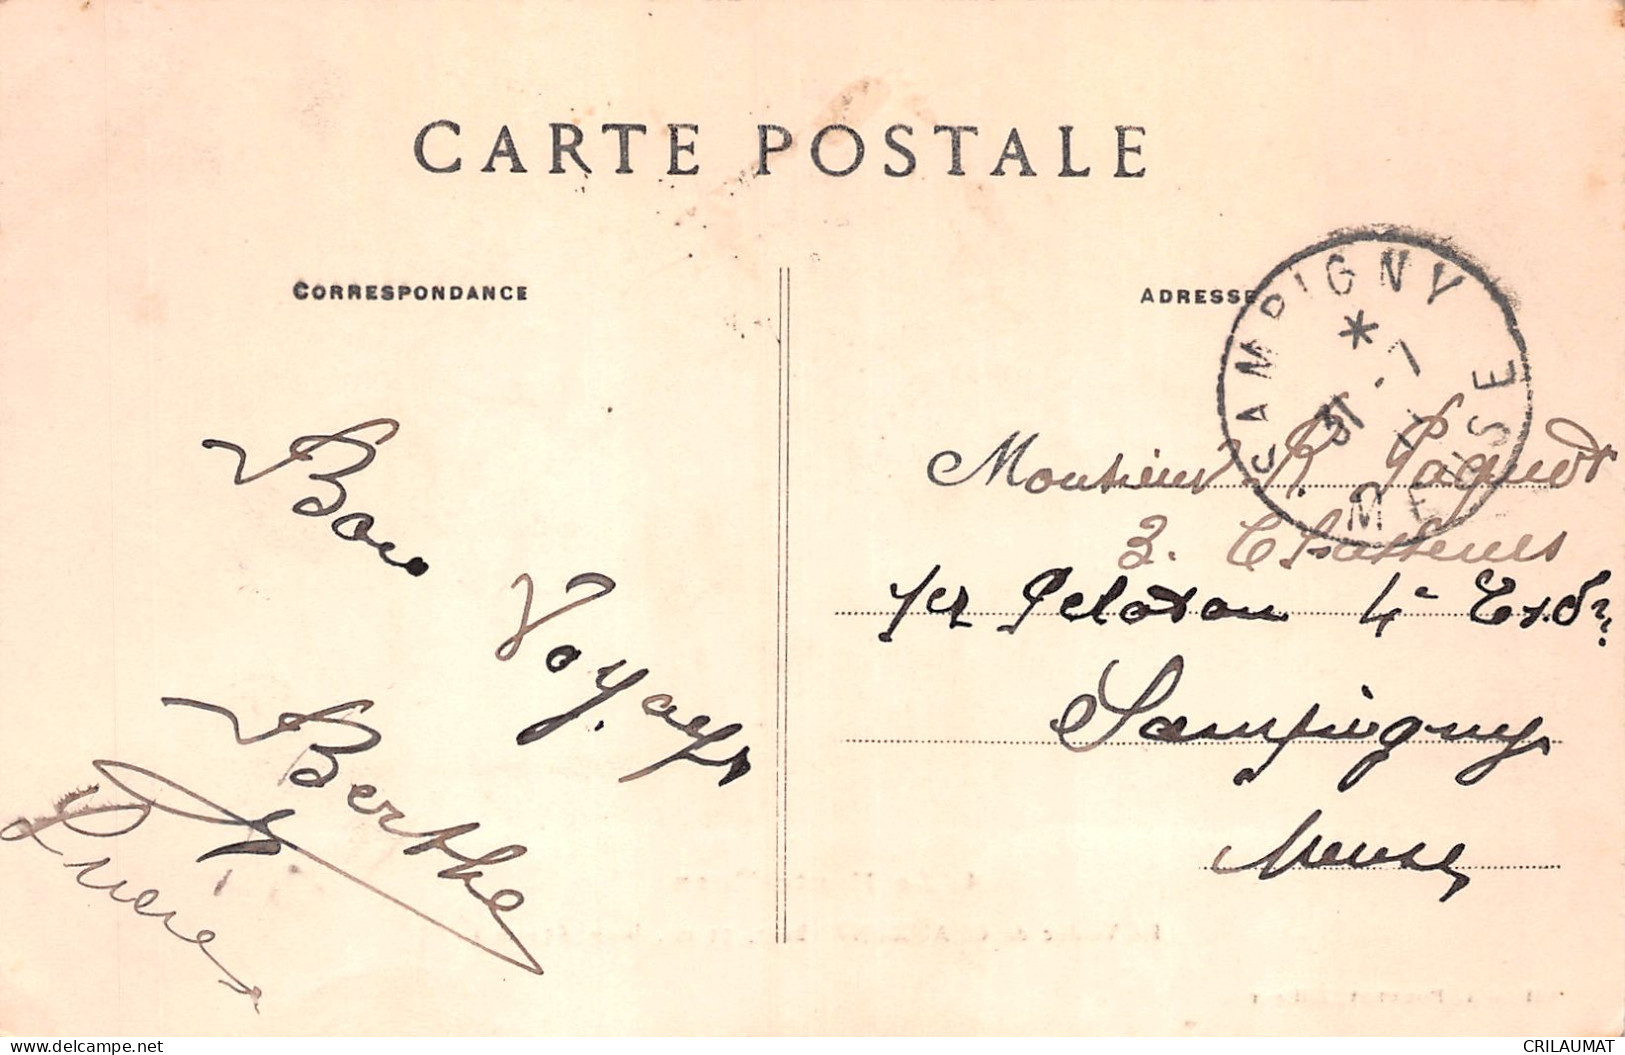 CARTE POSTALE
CORRESPONDANCE
ADRESSE
SAMPIGNY
* 31 - 7
MEUSE
Bon
Voyage
Berthe
Monsieur R. Paquot
3. Chasseurs
1er Peloton 4e Esdr
Sampigny
Meuse
CRILAUMAT